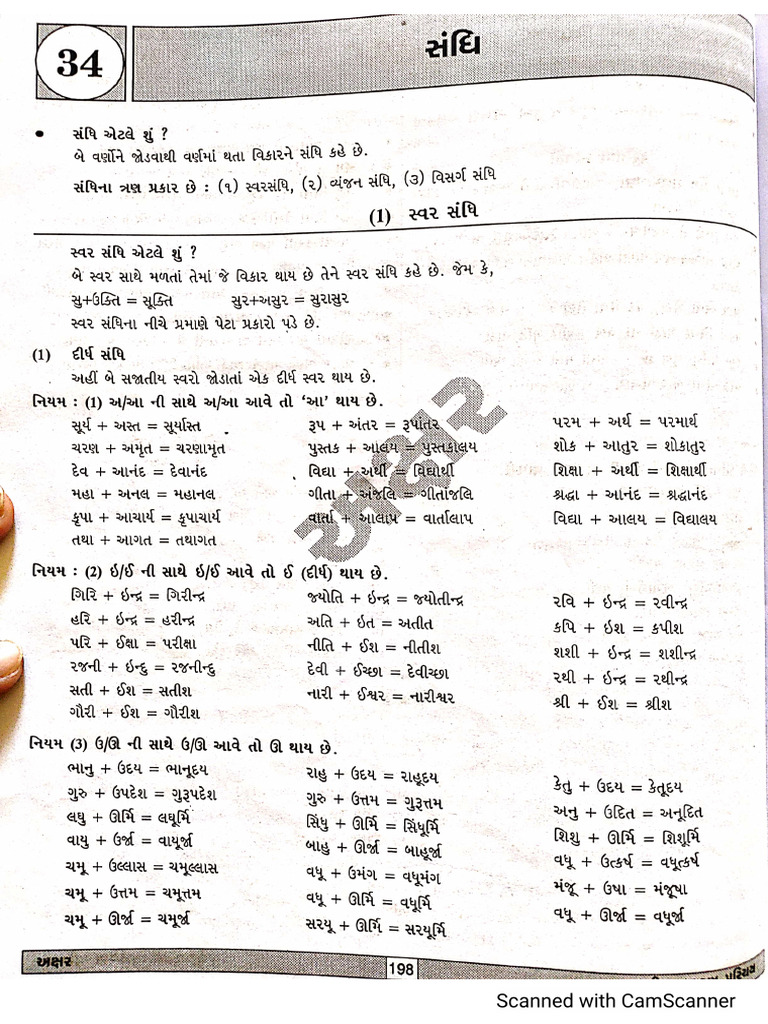 34
સંધિ
• સંધિ એટલે શું ?
બે વર્ણોને જોડવાથી વર્ણમાં થતા વિકારને સંધિ કહે છે.
સંધિના ત્રણ પ્રકાર છે : (૧) સ્વરસંધિ, (૨) વ્યંજન સંધિ, (૩) વિસર્ગ સંધિ
(1) સ્વર સંધિ
સ્વર સંધિ એટલે શું ?
બે સ્વર સાથે મળતાં તેમાં જે વિકાર થાય છે તેને સ્વર સંધિ કહે છે. જેમ કે,
સુ+ઉક્તિ = સૂક્તિ સુર+અસુર = સુરાસુર
સ્વર સંધિના નીચે પ્રમાણે પેટા પ્રકારો પડે છે.
(1) દીર્ઘ સંધિ
અહીં બે સજાતીય સ્વરો જોડાતાં એક દીર્ઘ સ્વર થાય છે.
નિયમ : (1) અ/આ ની સાથે અ/આ આવે તો ‘આ’ થાય છે.
સૂર્ય + અસ્ત = સૂર્યાસ્ત રૂપ + અંતર = રૂપાંતર પરમ + અર્થ = પરમાર્થ
ચરણ + અમૃત = ચરણામૃત પુસ્તક + આલય = પુસ્તકાલય શોક + આતુર = શોકાતુર
દેવ + આનંદ = દેવાનંદ વિદ્યા + અર્થી = વિદ્યાર્થી શિક્ષા + અર્થી = શિક્ષાર્થી
મહા + અનલ = મહાનલ ગીતા + અંજલિ = ગીતાંજલિ શ્રદ્ધા + આનંદ = શ્રદ્ધાનંદ
કૃપા + આચાર્ય = કૃપાચાર્ય વાર્તા + આલાપ = વાર્તાલાપ વિદ્યા + આલય = વિદ્યાલય
તથા + આગત = તથાગત
અક્ષર
નિયમ : (2) ઇ/ઈ ની સાથે ઇ/ઈ આવે તો ઈ (દીર્ઘ) થાય છે.
ગિરિ + ઇન્દ્ર = ગિરીન્દ્ર જ્યોતિ + ઇન્દ્ર = જ્યોતીન્દ્ર રવિ + ઇન્દ્ર = રવીન્દ્ર
હરિ + ઇન્દ્ર = હરીન્દ્ર અતિ + ઇત = અતીત કપિ + ઇશ = કપીશ
પરિ + ઈક્ષા = પરીક્ષા નીતિ + ઈશ = નીતીશ શશી + ઇન્દ્ર = શશીન્દ્ર
રજની + ઇન્દુ = રજનીન્દુ દેવી + ઈચ્છા = દેવીચ્છા રથી + ઇન્દ્ર = રથીન્દ્ર
સતી + ઈશ = સતીશ નારી + ઈશ્વર = નારીશ્વર શ્રી + ઈશ = શ્રીશ
ગૌરી + ઈશ = ગૌરીશ
નિયમ (3) ઉ/ઊ ની સાથે ઉ/ઊ આવે તો ઊ થાય છે.
ભાનુ + ઉદય = ભાનૂદય રાહુ + ઉદય = રાહૂદય કેતુ + ઉદય = કેતૂદય
ગુરુ + ઉપદેશ = ગુરૂપદેશ ગુરુ + ઉત્તમ = ગુરૂત્તમ અનુ + ઉદિત = અનૂદિત
લઘુ + ઊર્મિ = લઘૂર્મિ સિંધુ + ઊર્મિ = સિંધૂર્મિ શિશુ + ઊર્મિ = શિશૂર્મિ
વાયુ + ઉર્જા = વાયૂર્જા બાહુ + ઊર્જા = બાહૂર્જા વધૂ + ઉત્કર્ષ = વધૂત્કર્ષ
ચમૂ + ઉલ્લાસ = ચમૂલ્લાસ વધૂ + ઉમંગ = વધૂમંગ મંજૂ + ઉષા = મંજૂષા
ચમૂ + ઉત્તમ = ચમૂત્તમ વધૂ + ઊર્મિ = વધૂર્મિ વધૂ + ઊર્જા = વધૂર્જા
ચમૂ + ઊર્જા = ચમૂર્જા સરયૂ + ઊર્મિ = સરયૂર્મિ
અક્ષર 198 પરિચય
Scanned with CamScanner